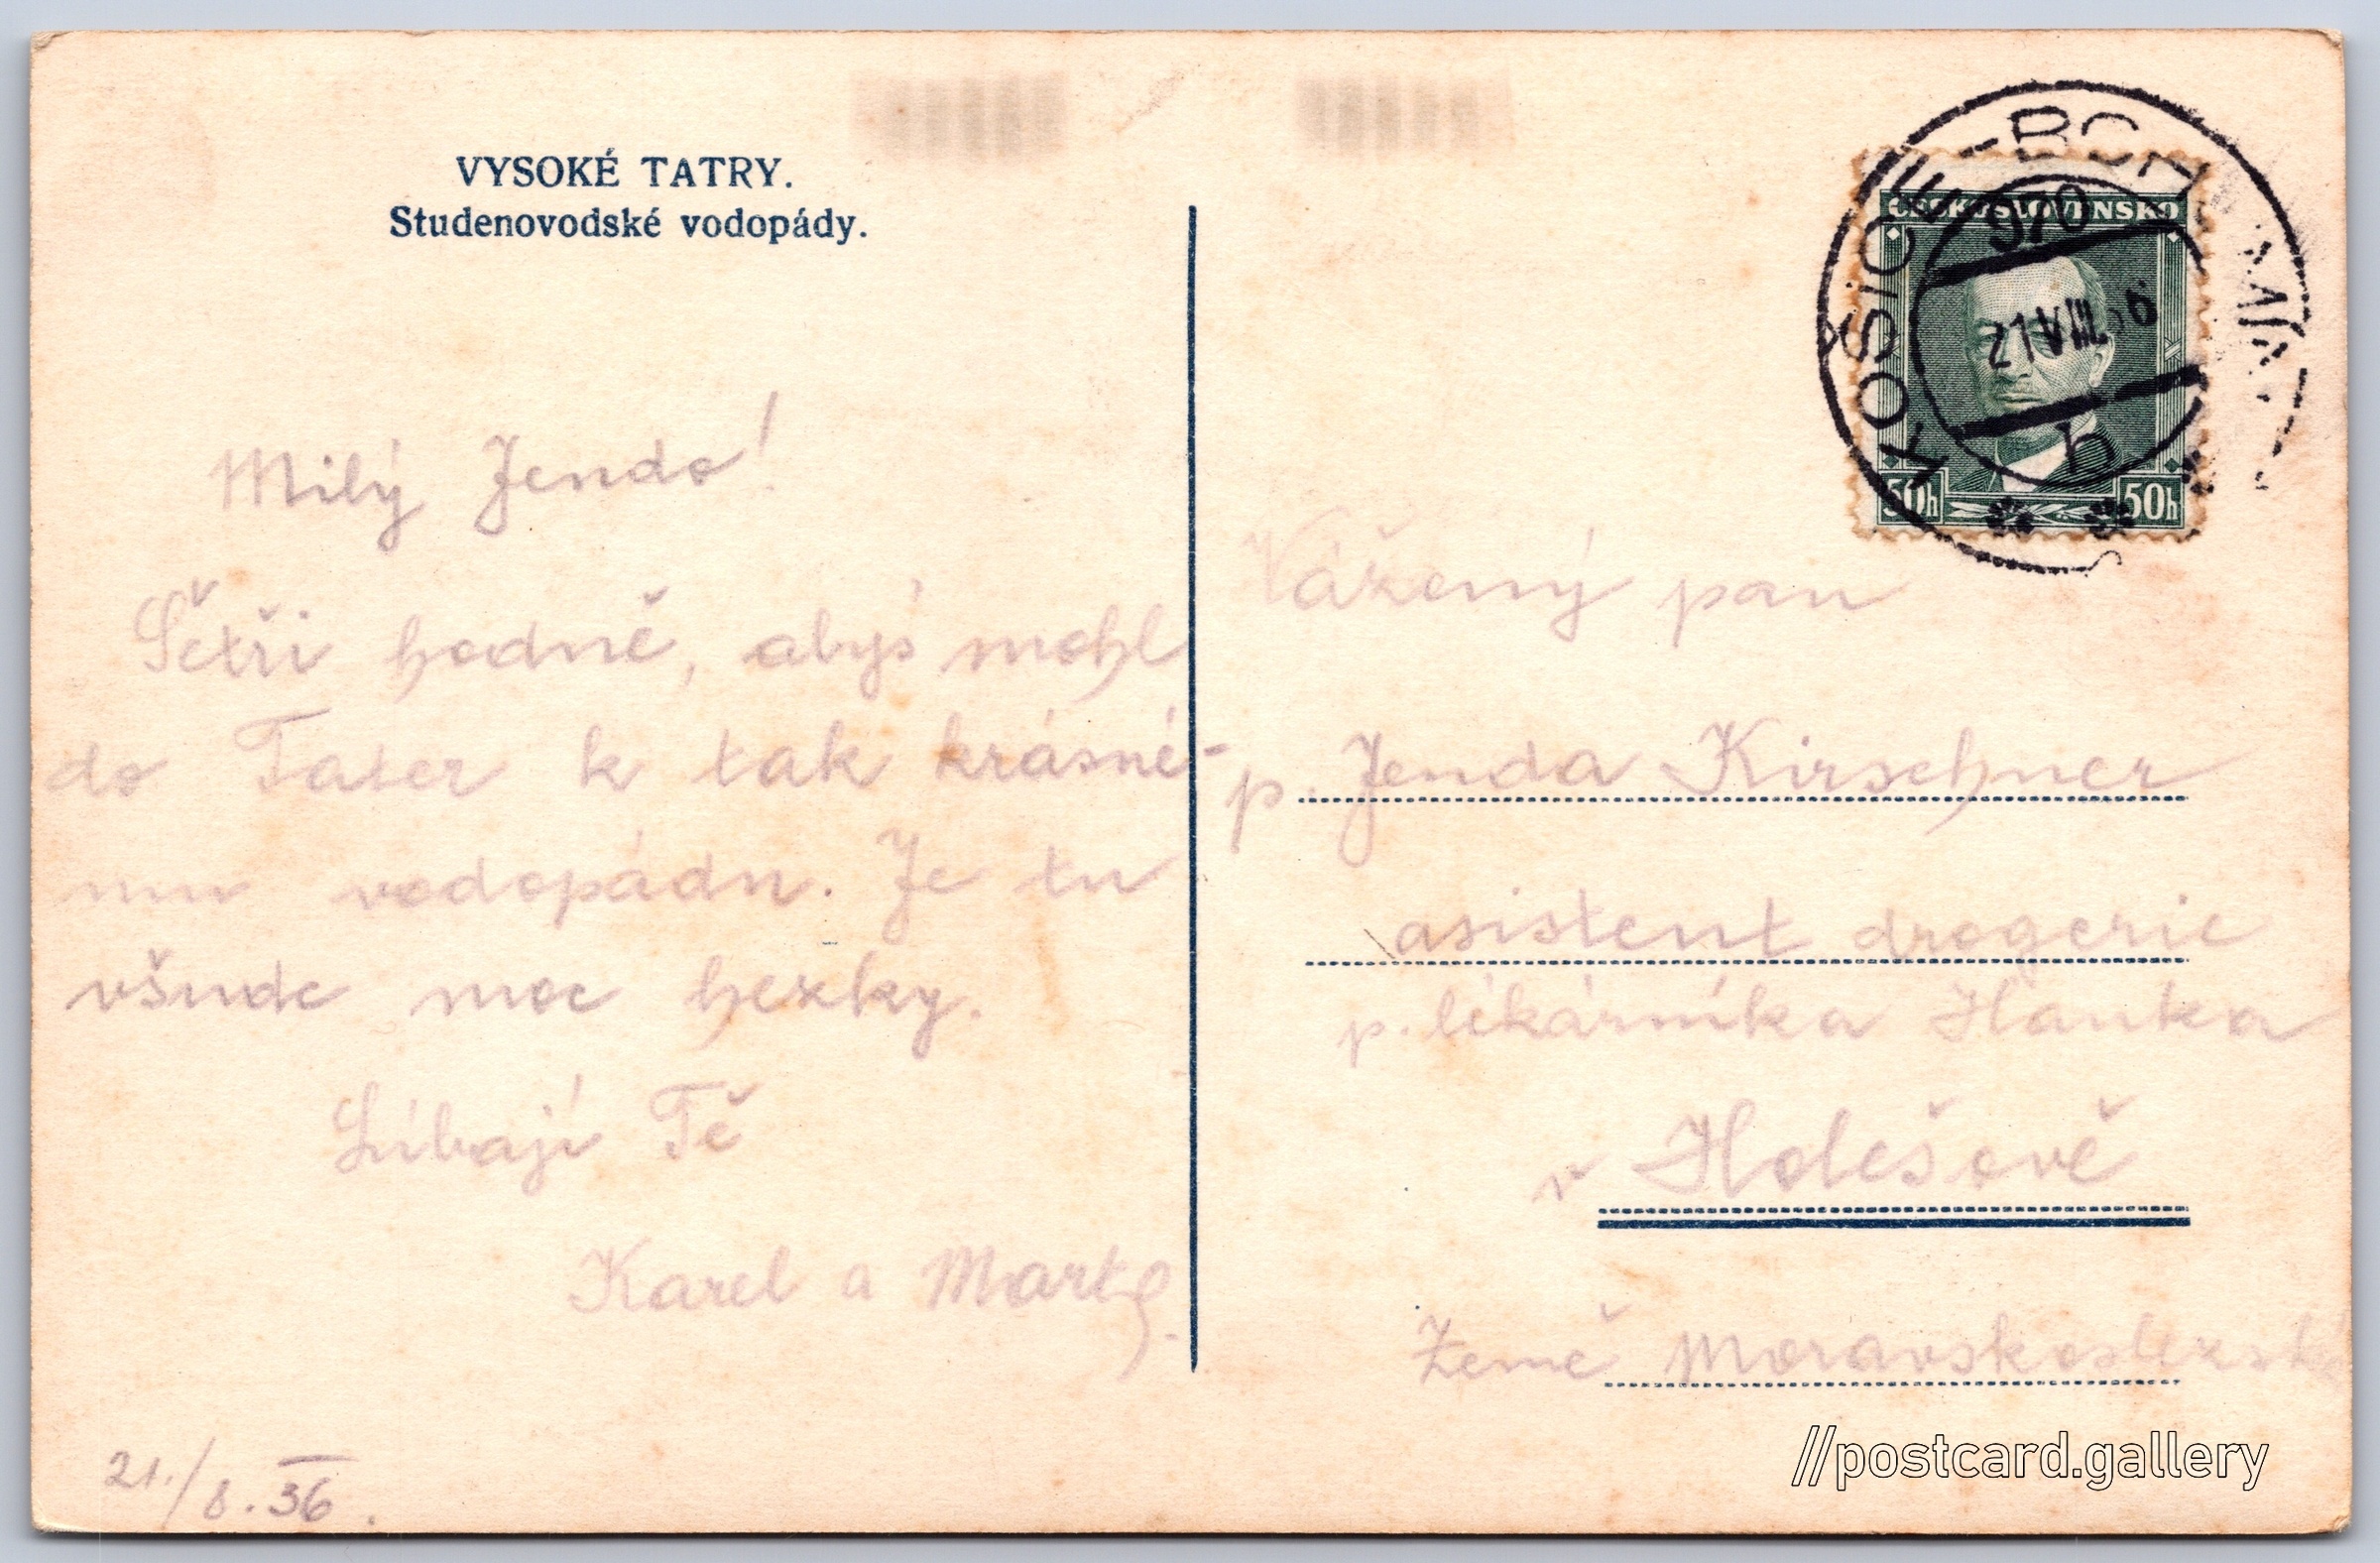 VYSOKÉ TATRY.
Studenovodské vodopády.
Milý Jendo!
Šetři hodně, abys mohl
do Tater k tak krásné-
mu vodopádu. Je tu
všude moc hezky.
Líbají Tě
Karel a Marta.
21./8.36.
ČESKOSLOVENSKO
50h 50h
KOŠICE-BOH
970
21.VIII.36
b
Vážený pan
p. Jenda Kirschner
asistent drogerie
p. lékárníka Hanka
v Holešově
Země Moravskoslezská
//postcard.gallery